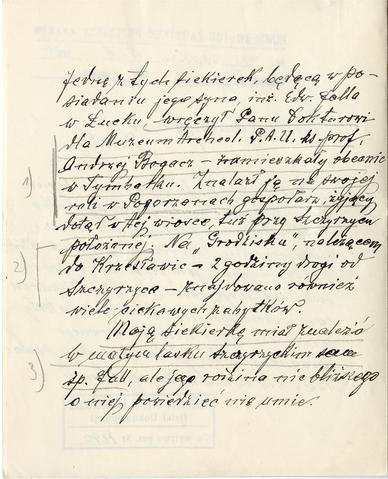 jedną z tych siekierek, będącą w po-
siadaniu jego syna, inż. Edw. Falla
w Łucku wręczył Panu Doktorowi
dla Muzeum Archeol. P.A.U. ks. prof.
Andrzej Bogacz – zamieszkały obecnie
1) w Tymbarku. Znalazł ją na swojej
roli w Pogorzanach gospodarz, żyjący
dotąd w tej wiosce, tuż przy Szczyrzycu
położonej. Na „Grodzisku” należącem
2) do Krzesławic – 2 godziny drogi od
Szczyrzyca – znajdowano również
wiele ciekawych zabytków.
Moją siekierkę miał znaleźć
w małym lasku szczyrzyckim sam
3) śp. Fall, ale jego rodzina nic bliższego
o niej powiedzieć nie umie.